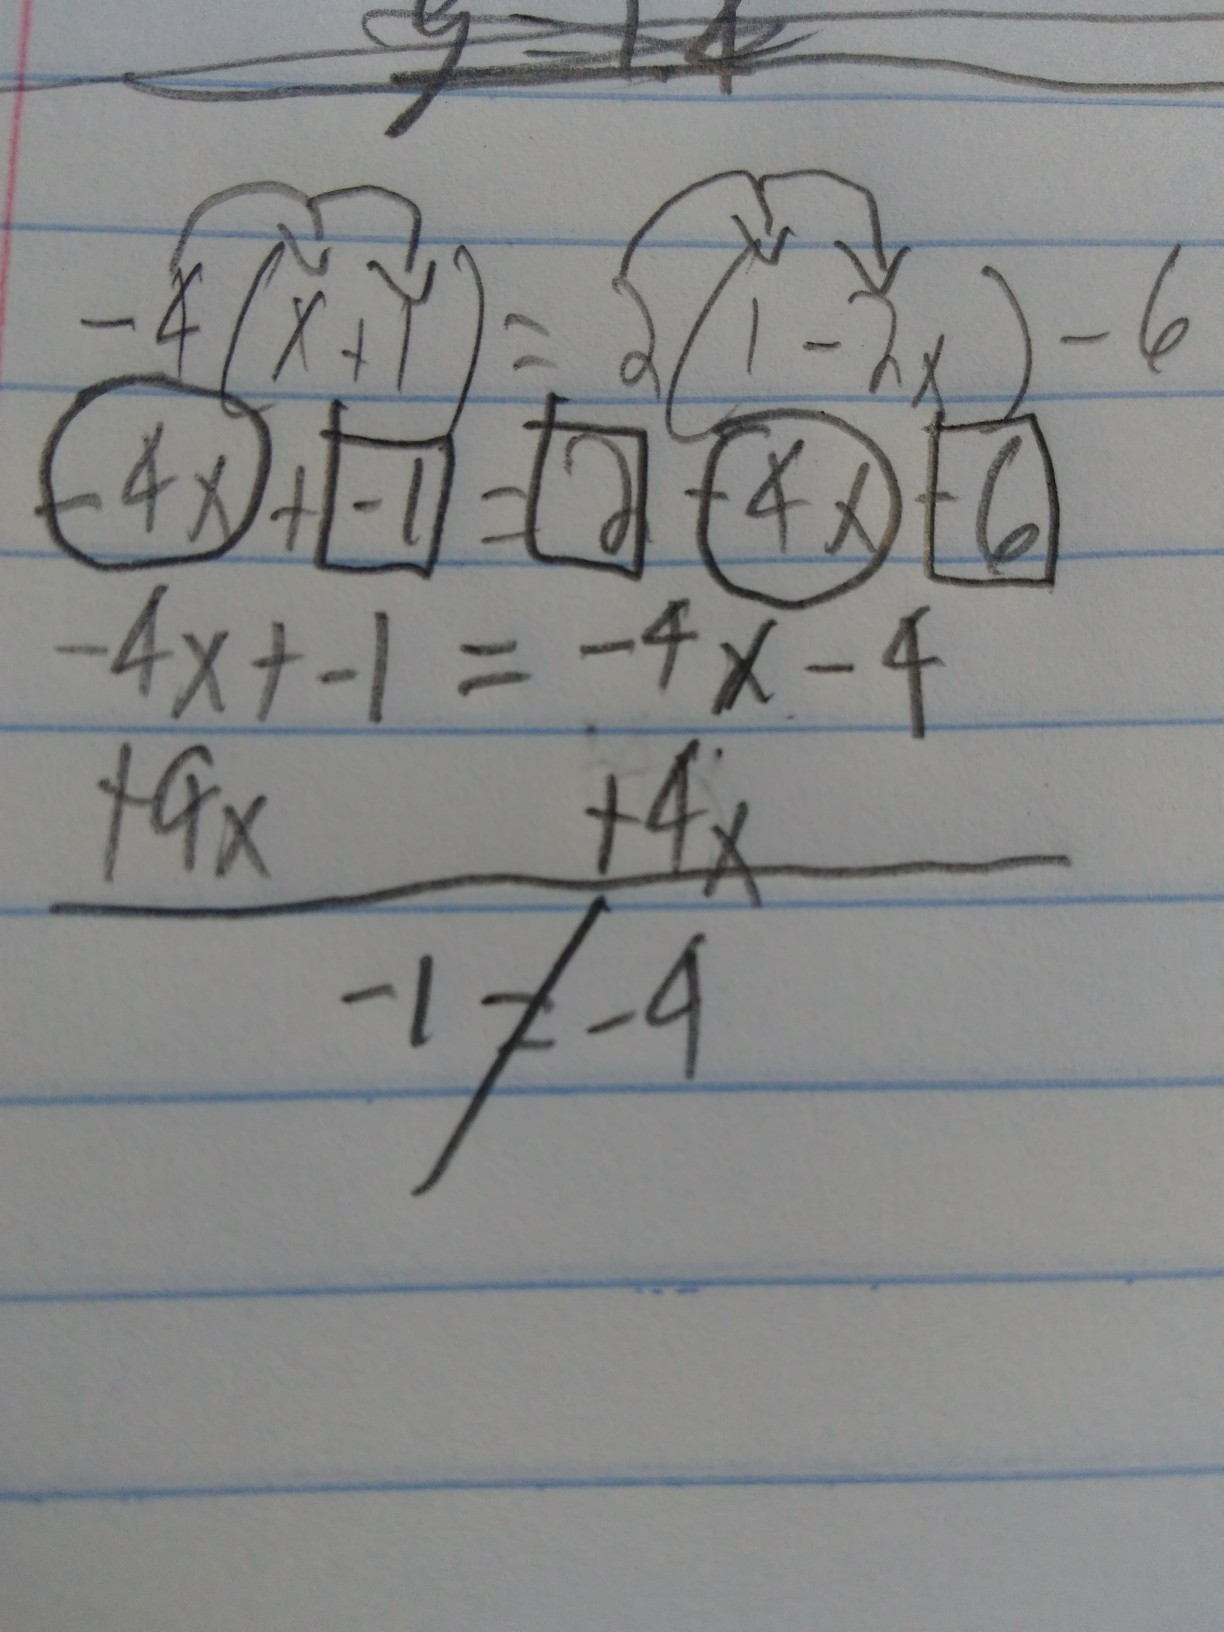 y = 1.4
-4(x+1) = 2(1-2x)-6
-4x + -1 = 2 - 4x - 6
-4x + -1 = -4x - 4
+4x +4x
-1 ≠ -4